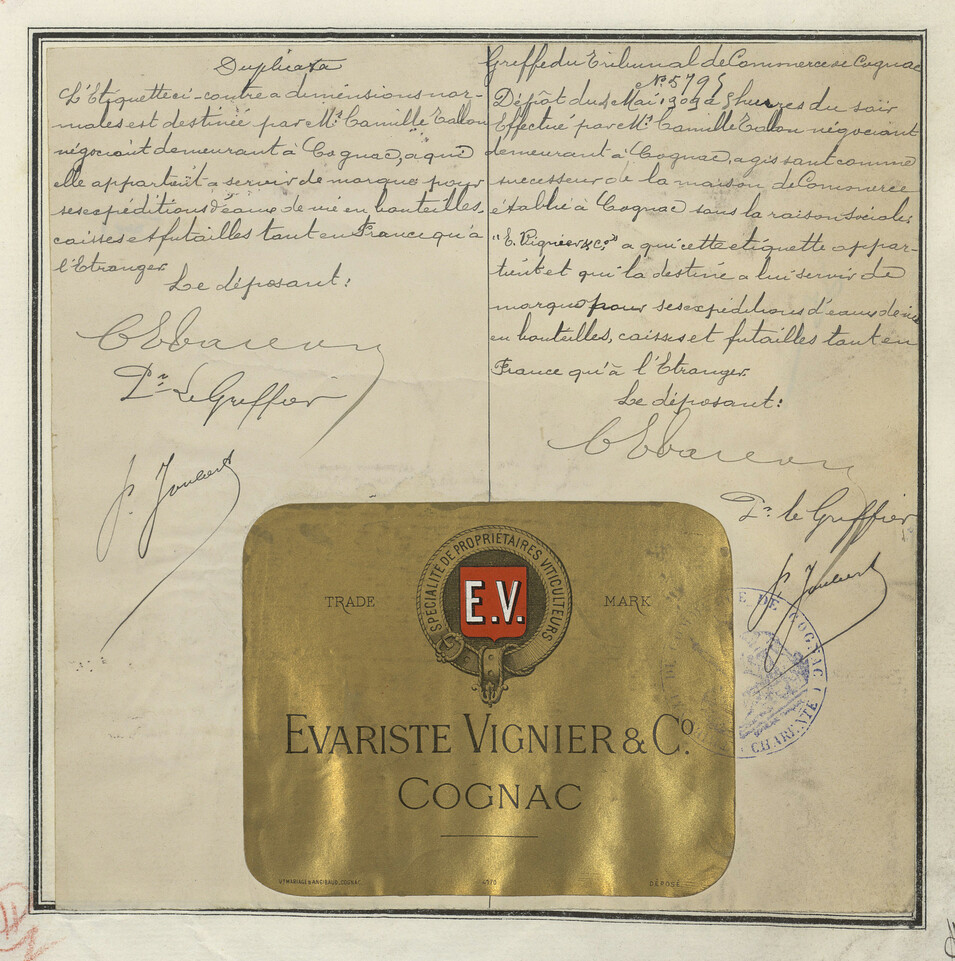 Duplicata
L'Etiquette ci-contre a dimensions nor-
males est destinée par Mr. Camille Tallon
négociant demeurant à Cognac, a qui
elle appartient a servir de marque pour
ses expéditions d'eaux de vie en bouteilles,
caisses et futailles tant en France qu'à
l'Etranger.
Le déposant:
Pr. Le Greffier
P. Joubert
Greffe du Tribunal de Commerce de Cognac
No. 5795
Dépôt du 5 Mai 1909 à heures du soir
Effectué par Mr. Camille Tallon négociant
demeurant à Cognac, agissant comme
successeur de la maison de Commerce
établie à Cognac sous la raison sociale:
"E. Vignier & Co." a qui cette étiquette appar-
tient et qui la destine a lui servir de
marque pour ses expéditions d'eaux de vie
en bouteilles, caisses et futailles tant en
France qu'à l'Etranger.
Le déposant:
Pr. le Greffier
P. Joubert
SPÉCIALITÉ DE PROPRIÉTAIRES VITICULTEURS
TRADE E.V. MARK
EVARISTE VIGNIER & Co.
COGNAC
LITH. MARIAGE & ANGIBAUD, COGNAC. 4570 DÉPOSÉ
DE COGNAC
CHARENTE